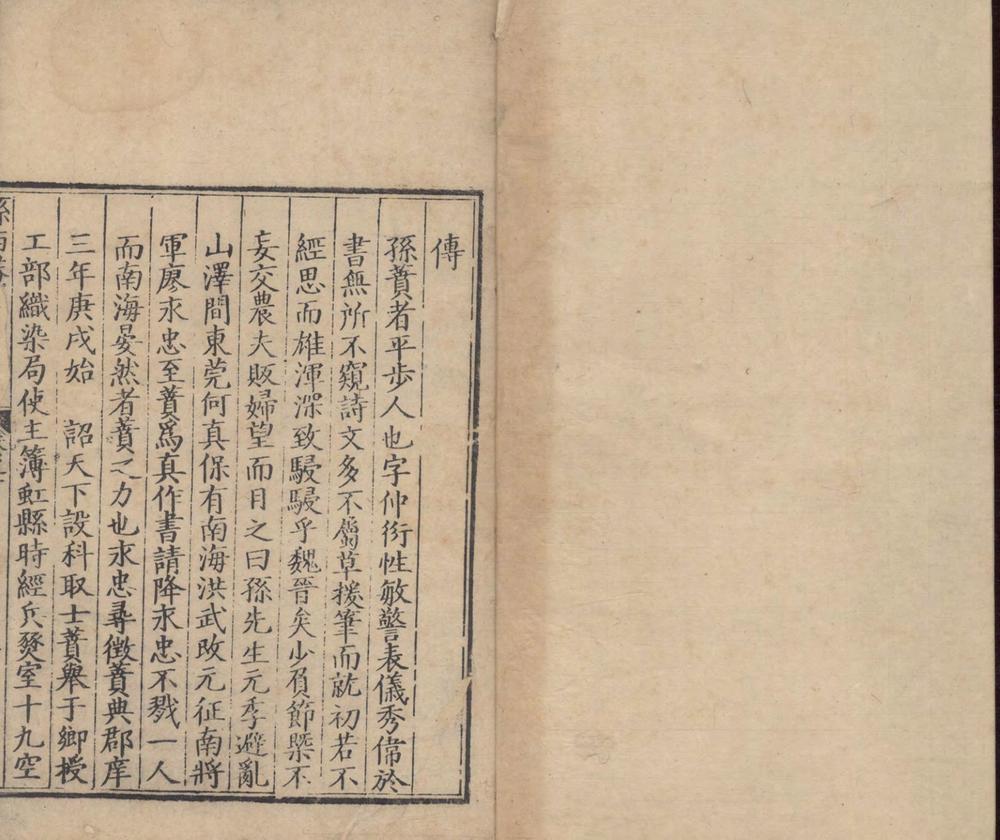 傳
孫蕡者平步人也字仲衍性敏警表儀秀偉於
書無所不窺詩文多不屬草援筆而就初若不
經思而雄渾深致駸駸乎魏晉矣少負節槩不
妄交農夫販婦望而目之曰孫先生元季避亂
山澤間東莞何真保有南海洪武改元征南將
軍廖永忠至蕡爲真作書請降永忠不戮一人
而南海晏然者蕡之力也永忠尋徵蕡典郡庠
三年庚戌始　詔天下設科取士蕡舉于鄉授
工部織染局使主簿虹縣時經兵燹室十九空